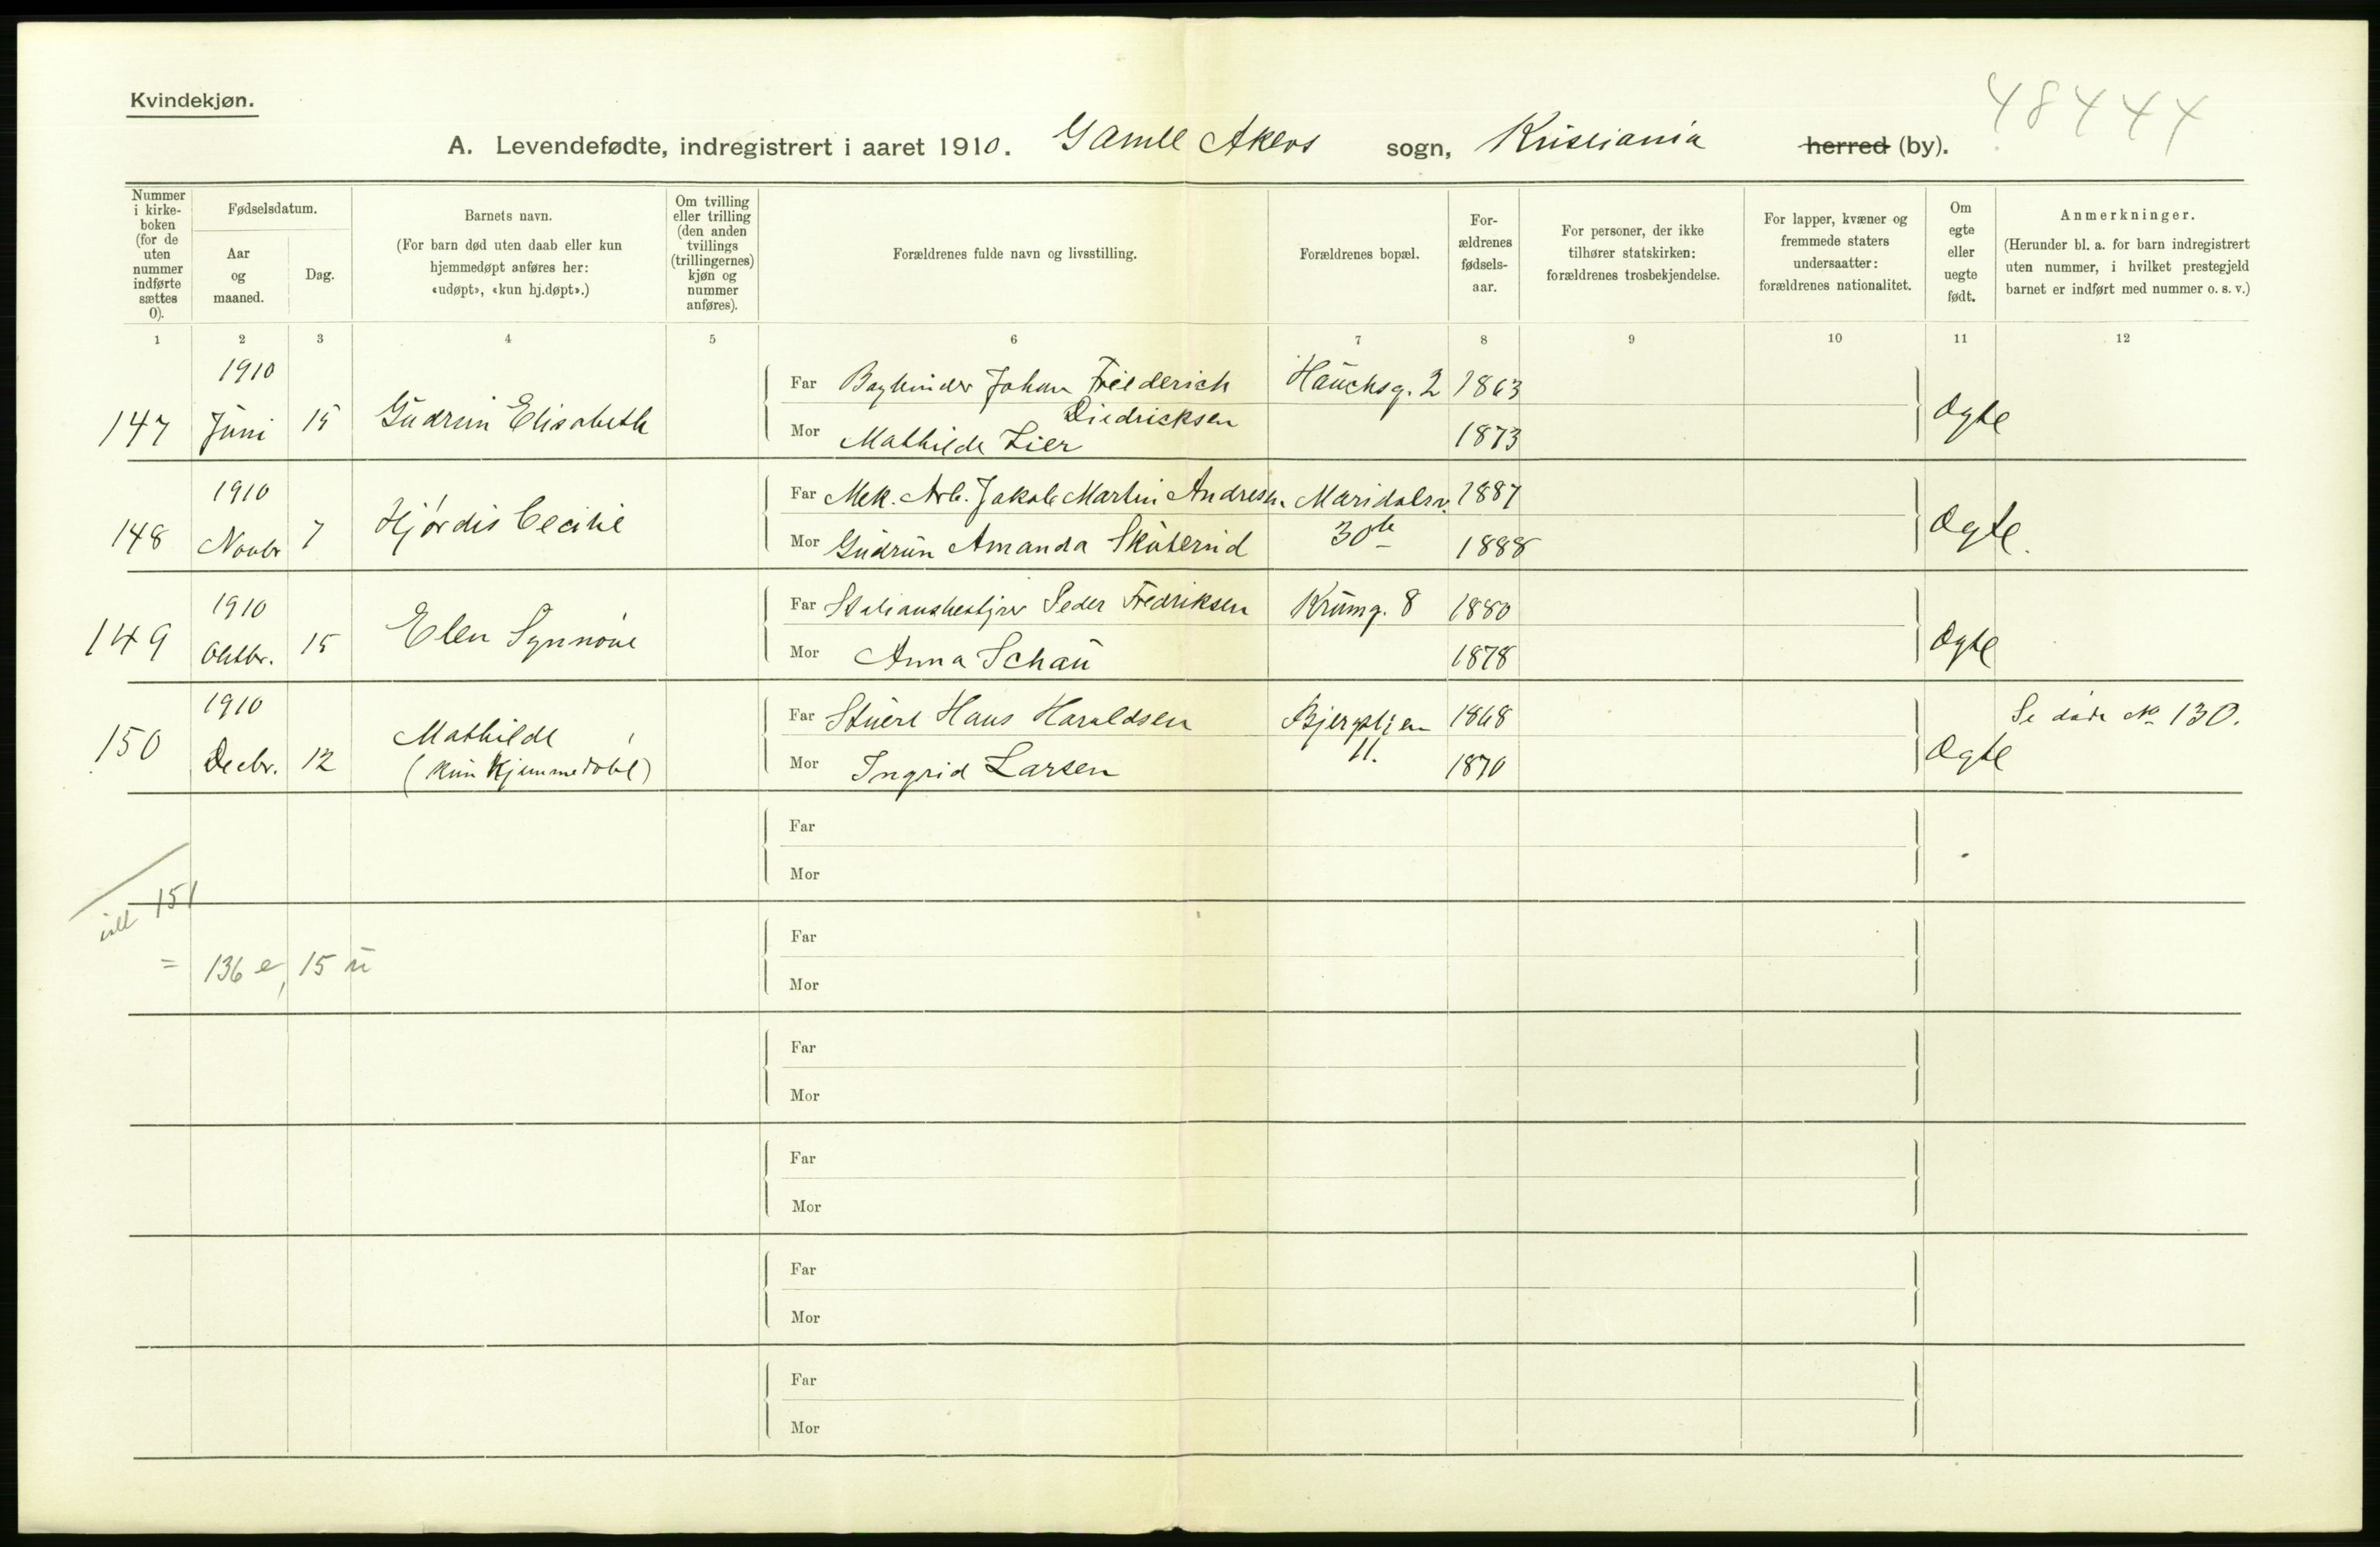 Kvindekjøn.
48444
A. Levendefødte, indregistrert i aaret 1910. Gamle Akers sogn, Kristiania herred (by).
Nummer i kirke-boken (for de uten nummer indførte sættes 0).
Fødselsdatum.
Aar og maaned.
Dag.
Barnets navn.
(For barn død uten daab eller kun hjemmedøpt anføres her: «udøpt», «kun hj.døpt».)
Om tvilling eller trilling (den anden tvillings (trillingernes) kjøn og nummer anføres).
Forældrenes fulde navn og livsstilling.
Forældrenes bopæl.
For-ældrenes fødsels-aar.
For personer, der ikke tilhører statskirken: forældrenes trosbekjendelse.
For lapper, kvæner og fremmede staters undersaatter: forældrenes nationalitet.
Om egte eller uegte født.
Anmerkninger.
(Herunder bl. a. for barn indregistrert uten nummer, i hvilket prestegjeld barnet er indført med nummer o. s. v.)
1 2 3 4 5 6 7 8 9 10 11 12
147 1910 Juni 15 Gudrun Elisabeth
Far Bogbinder Johan Friederich Diedricksen Hauchsg. 2 1863
Mor Mathilde Lier 1873
Ægte
148 1910 Novbr 7 Hjørdis Cecilie
Far Mek. Arb. Jakob Martin Andresen Maridalsv. 30b 1887
Mor Gudrun Amanda Skuterud 1888
Ægte.
149 1910 Oktbr. 15 Elen Synnøve
Far Stationsbetjen Peder Fredriksen Krumg. 8 1880
Mor Anna Schau 1878
Ægte
150 1910 Decbr. 12 Mathilde (kun hjemmedøbt)
Far Stuert Hans Haraldsen Bjergstjen 11. 1868
Mor Ingrid Larsen 1870
Ægte
Se døde No 130.
Far
Mor
151
Far
Mor
= 136 e, 15 u
Far
Mor
Far
Mor
Far
Mor
Far
Mor